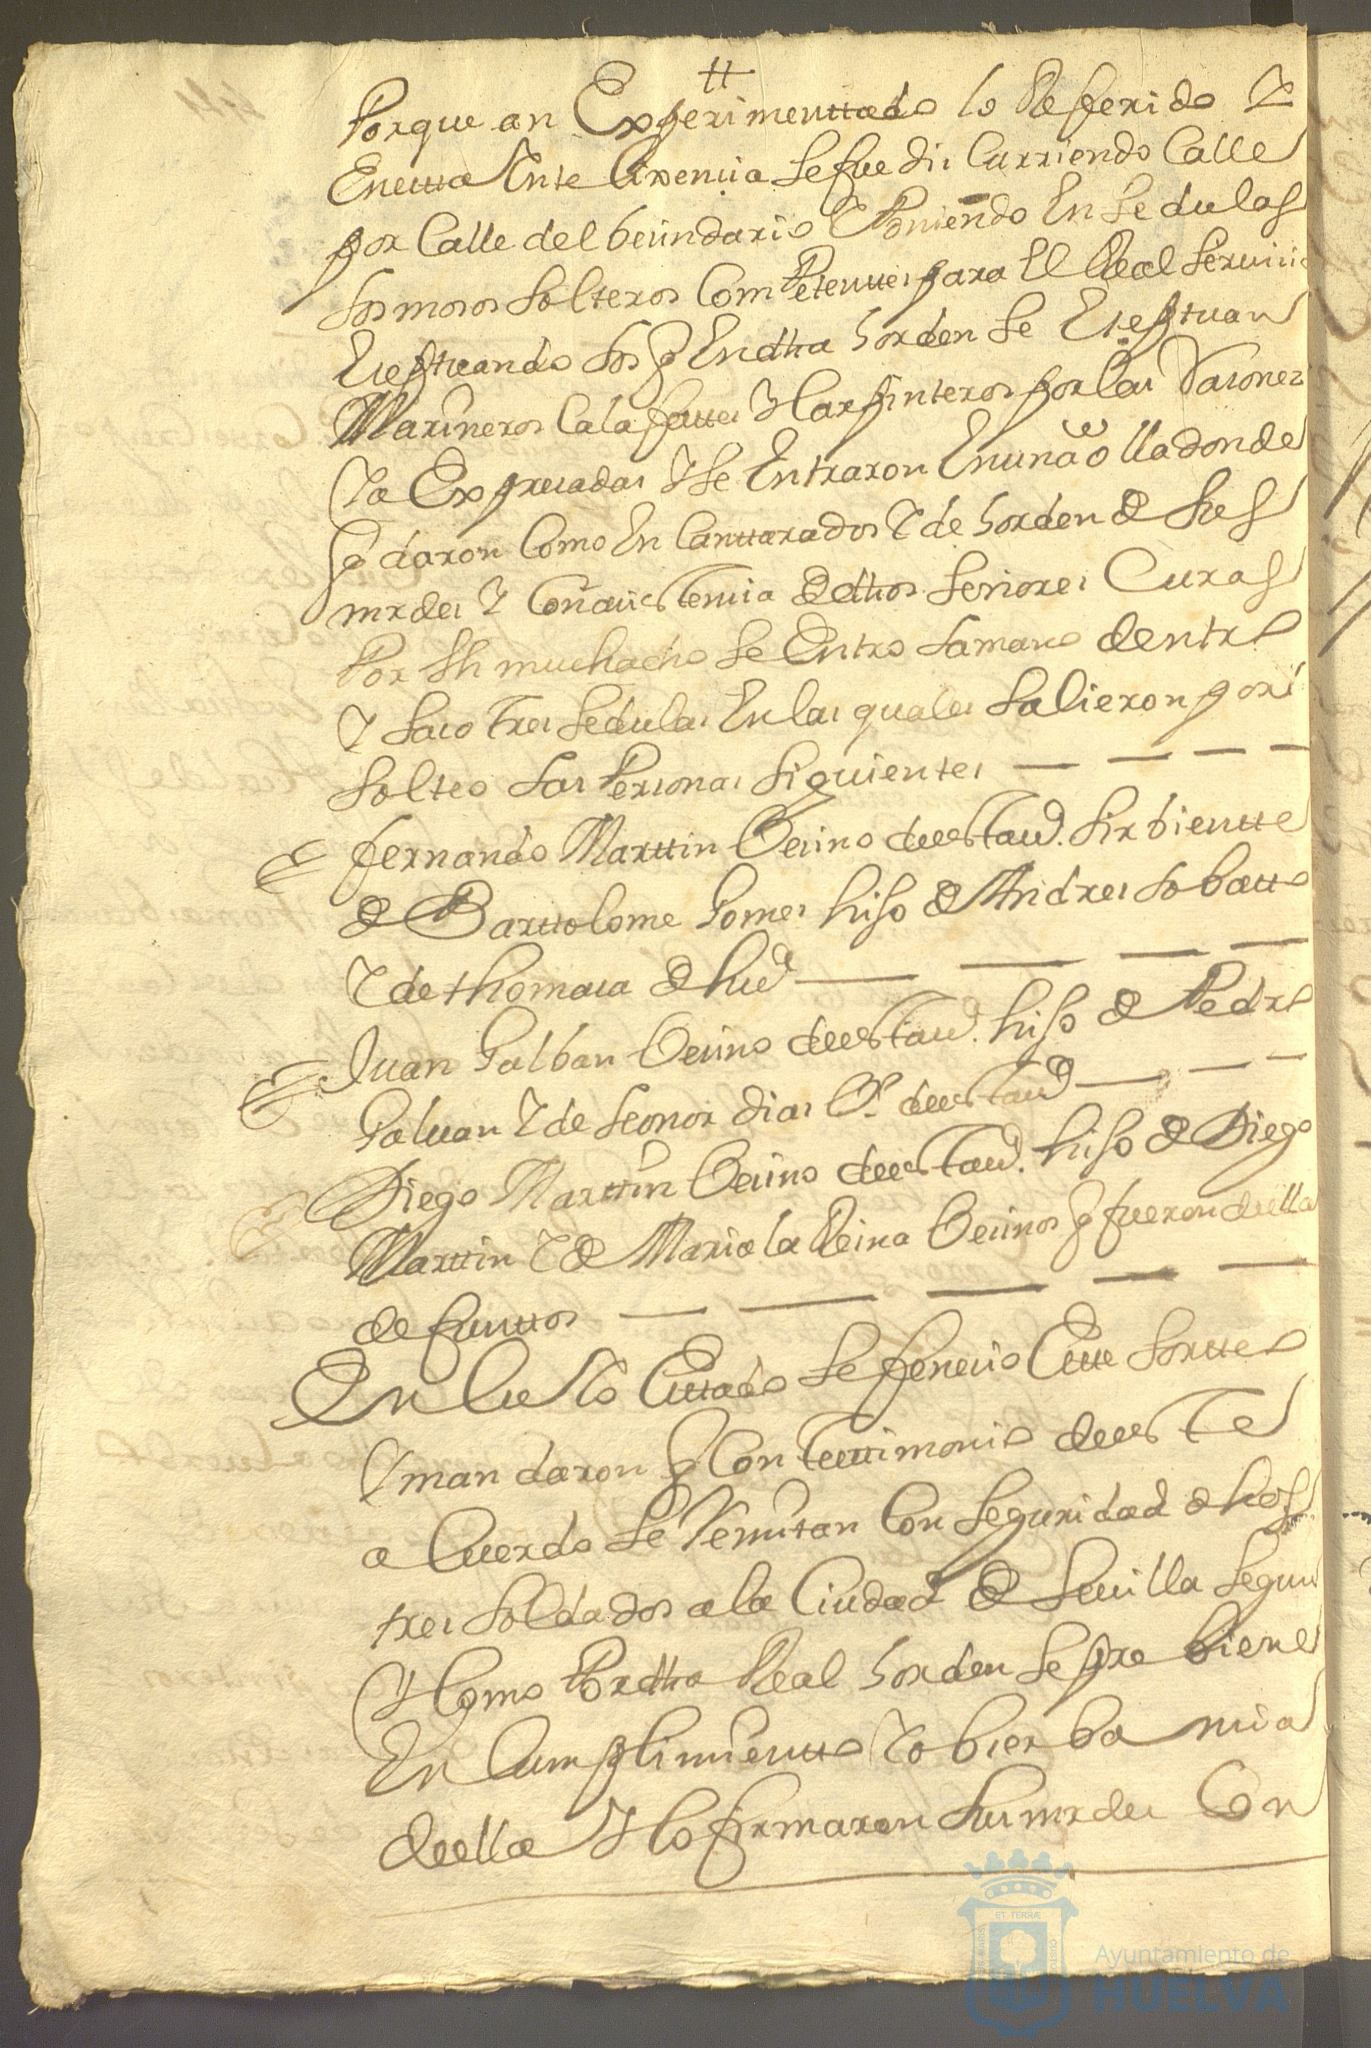 tt
Porque an Experimenttado lo Referido Y
En etta Inte lixencia se fue discurriendo Calle
por Calle del becindario Poniendo En sedulas
los mosos solteros Competenttes para El Real Servicio
Esestuando los q En dha horden se Esestuan
Marineros Calafattes Y Carpinteros por las Rasones
Ya Expresadas Y se Entraron En una olla donde
qdaron Como En Canttarados Y de horden de sus
mrdes Y Con asistencia de dhos Senores Curas
Por Un muchacho se Entro la mano dentro
Y saco tres sedulas En las quales Salieron por
solteo las Personas siguientes
fernando Marttin Becino de esta uª. sirbientte
de Barttolome Gomes hiso de Andres lobatto
Y de thomasa de hued
Juan Galban Becino de esta uª. hiso de Pedro
Galuan Y de leonor dias Bº de esta uª
Diego Marttin Becino de esta uª. hiso de Diego
Marttin Y de Maria la Reina Becinos q fueron de ella
defunttos
En Cuio Esttado se fenecio Este sortteo
Y mandaron q Con testtimonio de este
a Cuerdo se Remitan Con seguridad dhos
tres soldados a la Ciudad de Seuilla segun
Y Como Por dha Real horden se prebiene
En Cumplimientto Y obserbancia
de ella Y lo firmaron sus mrdes Con
Ayuntamiento de
HUELVA